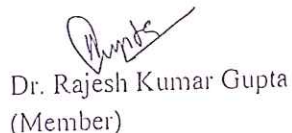 Gupta
Dr. Rajesh Kumar Gupta
(Member)